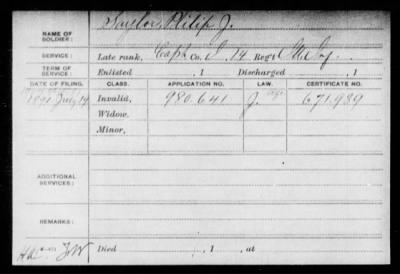 NAME OF SOLDIER: Naylor, Philip J.
SERVICE: Late rank, Capt Co. I, 14 Reg't
TERM OF SERVICE: Enlisted , 1 Discharged , 1
DATE OF FILING. CLASS. APPLICATION NO. LAW. CERTIFICATE NO.
1891 July 14 Invalid, 980.641 J. 671.989
Widow.
Minor,
ADDITIONAL SERVICES:
REMARKS:
Died , 1 , at